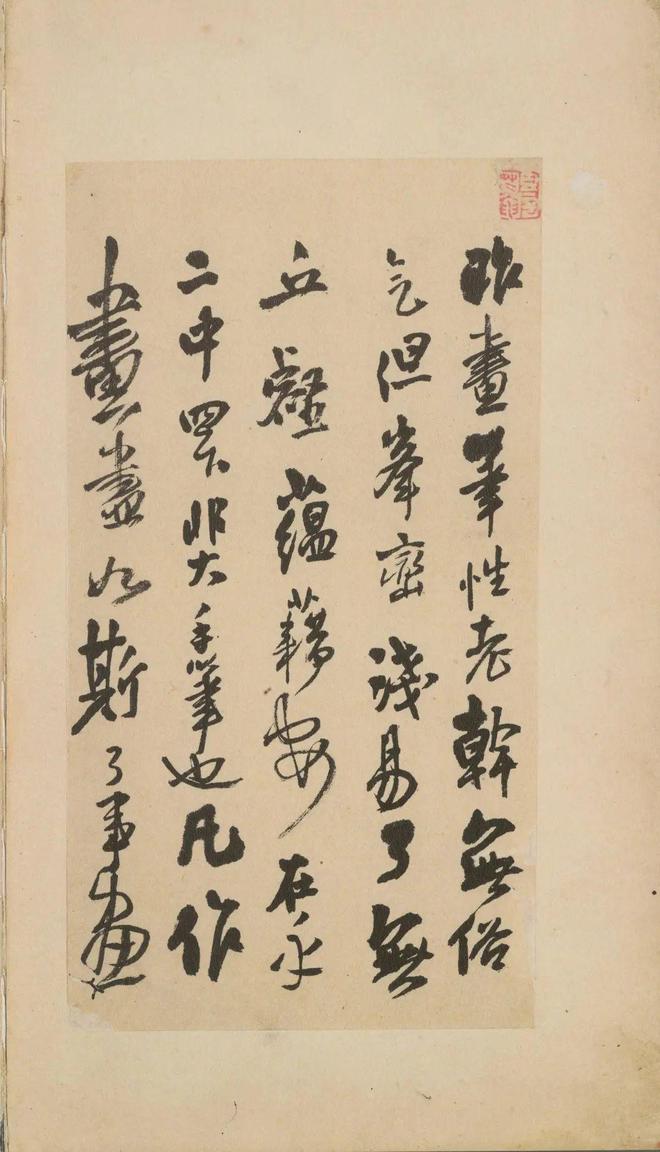 昨畫筆性老幹無俗
气但峯巒淺易了無
丘壑蘊藉安在永
二中四下非大手筆也凡作
畫盡如斯了事畫